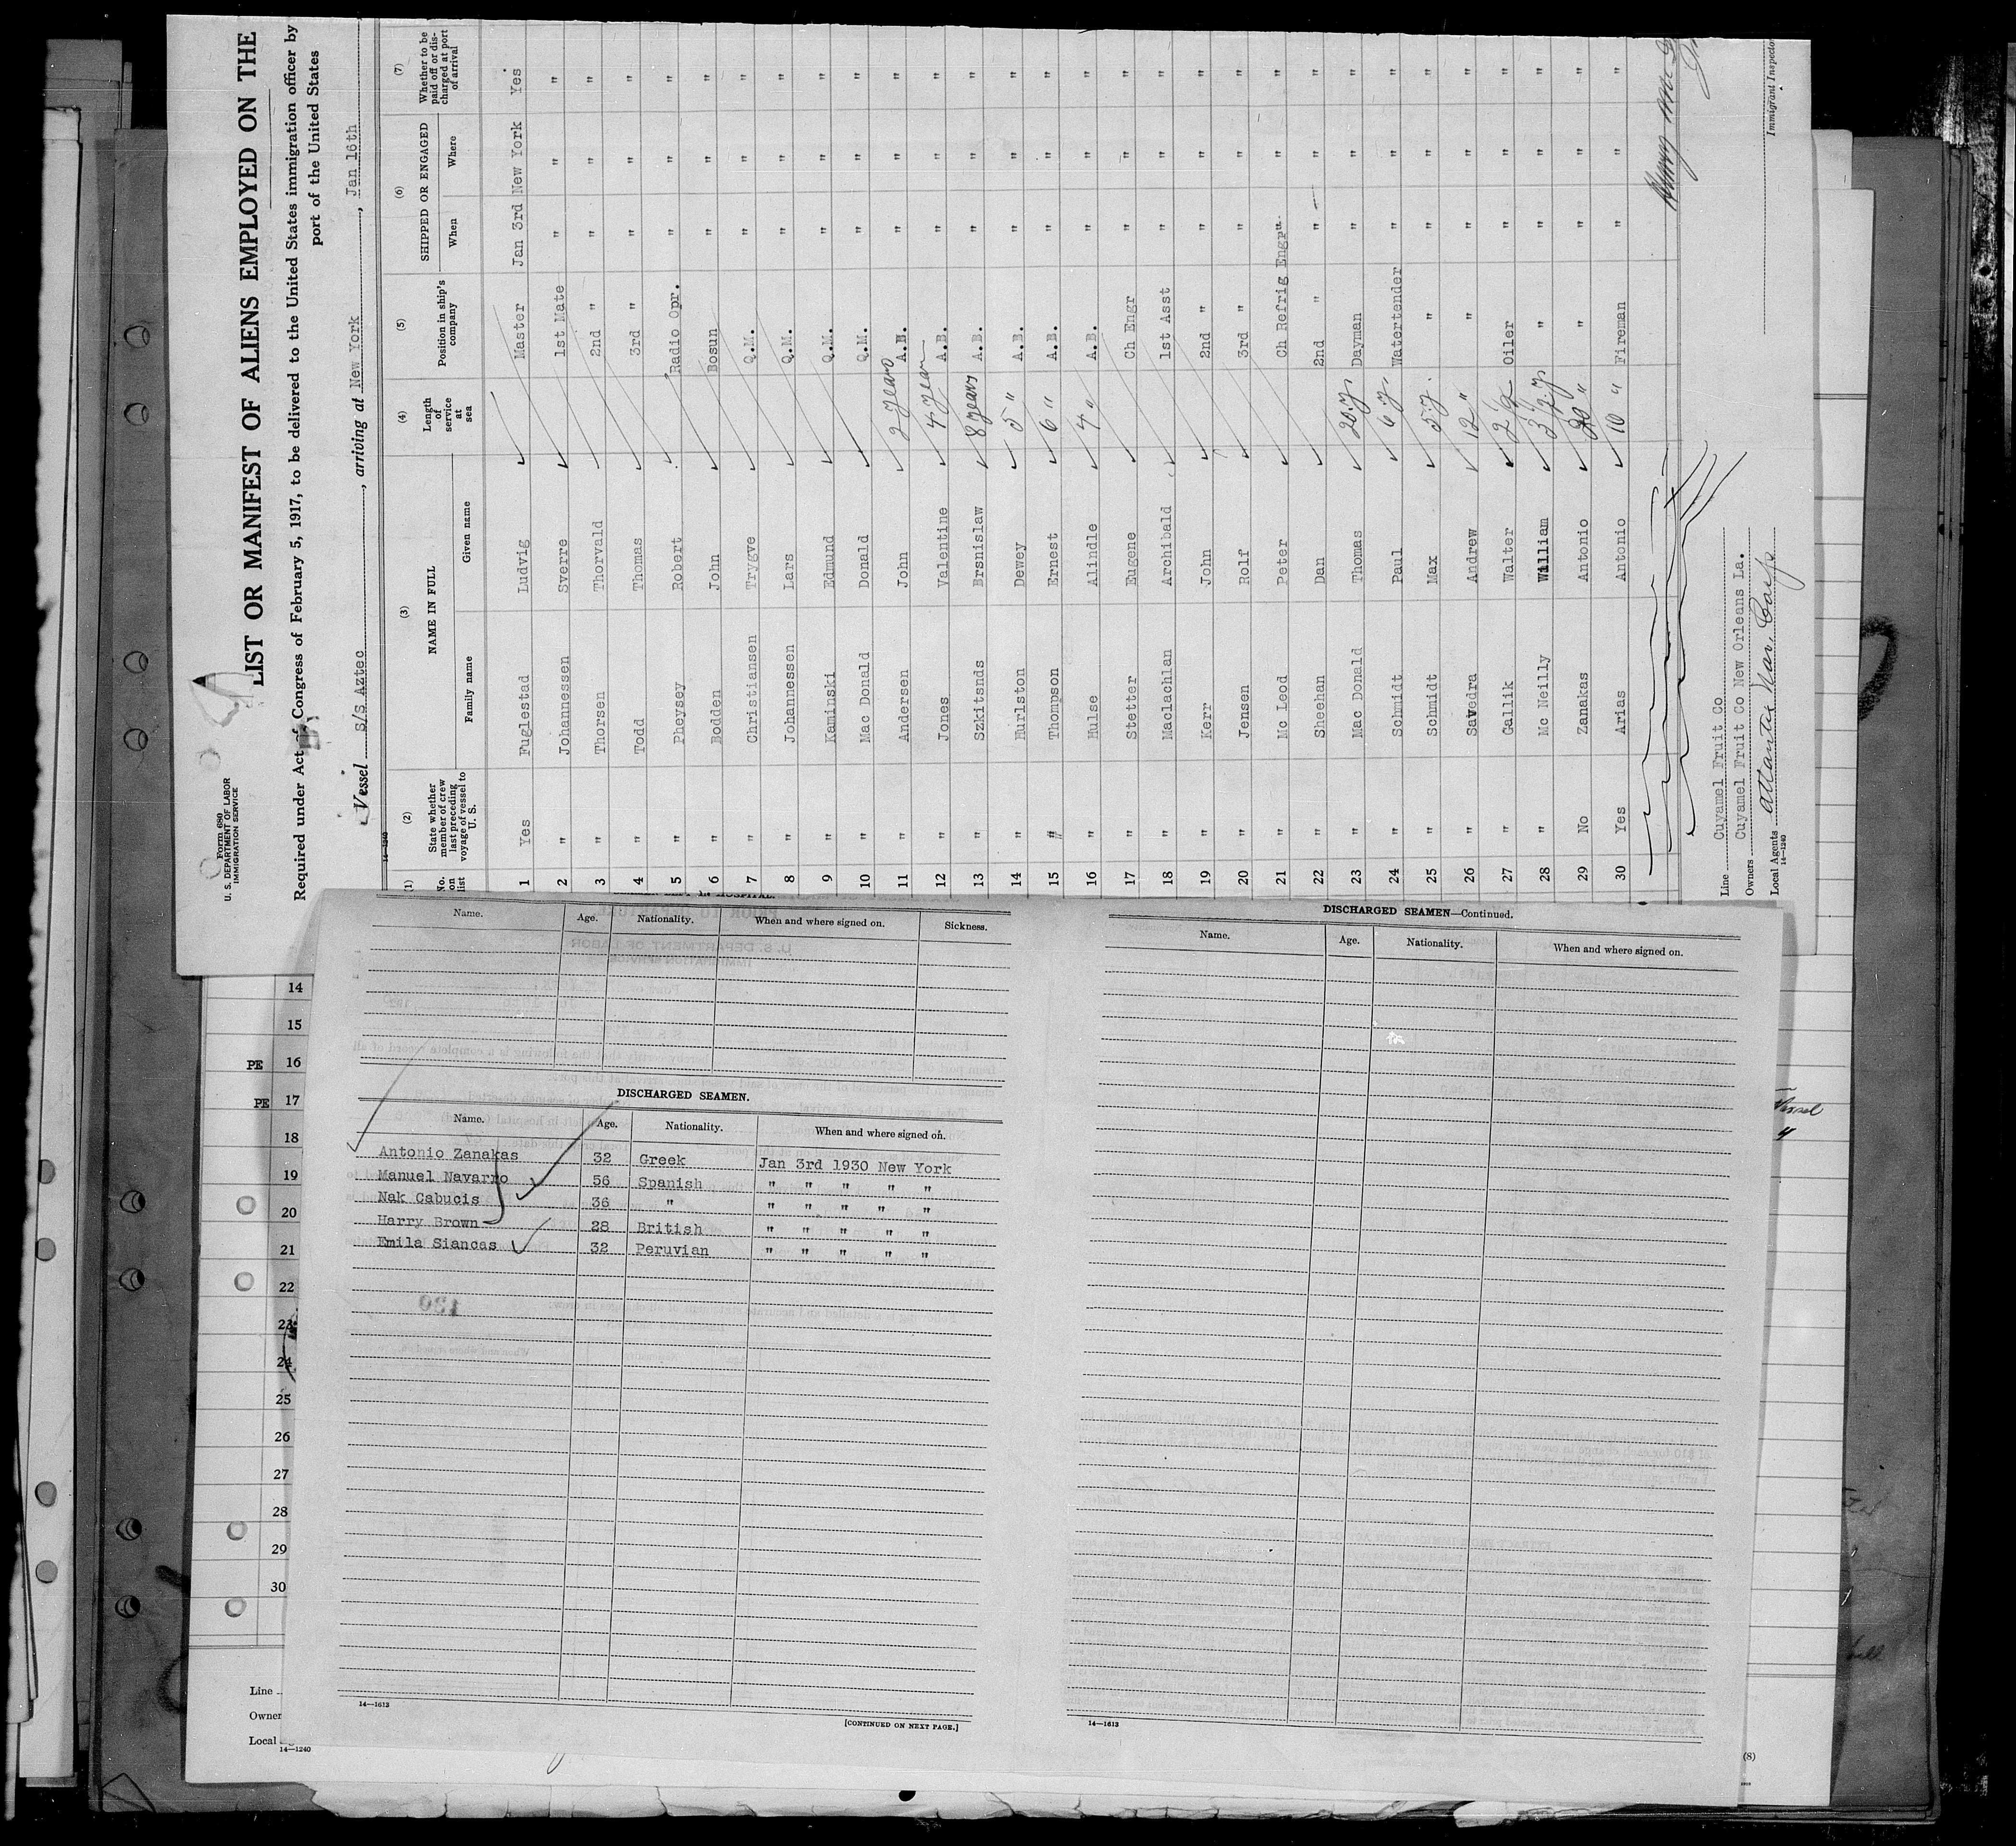 Form 680
U. S. DEPARTMENT OF LABOR
IMMIGRATION SERVICE
LIST OR MANIFEST OF ALIENS EMPLOYED ON THE
Required under Act of Congress of February 5, 1917, to be delivered to the United States immigration officer by
port of the United States
Vessel S/S Aztec, arriving at New York, Jan 16th
14-1240
(1) (2) (3) (4) (5) (6) (7)
No. on list State whether member of crew last preceding voyage of vessel to U. S. NAME IN FULL Family name Given name Length of service at sea Position in ship's company SHIPPED OR ENGAGED When Where Whether to be paid off or discharged at port of arrival
1 Yes Fuglestad Ludvig Master Jan 3rd New York Yes
2 " Johannessen Sverre 1st Mate " " "
3 " Thorsen Thorvald 2nd " " " "
4 " Todd Thomas 3rd " " " "
5 " Pheysey Robert Radio Opr. " " "
6 " Bodden John Bosun " " "
7 " Christiansen Trygve Q.M. " " "
8 " Johannessen Lars Q.M. " " "
9 " Kaminski Edmund Q.M. " " "
10 " Mac Donald Donald Q.M. " " "
11 " Andersen John 2 years A.B. " " "
12 " Jones Valentine 4 year A.B. " " "
13 " Szkitsnds Ersnislaw 8 years A.B. " " "
14 " Hurlston Dewey 5 " A.B. " " "
15 " Thompson Ernest 6 " A.B. " " "
16 " Hulse Alindle 4 " A.B. " " "
17 " Stetter Eugene Ch Engr " " "
18 " Maclachlan Archibald 1st Asst " " "
19 " Kerr John 2nd " " " "
20 " Jensen Rolf 3rd " " " "
21 " Mc Leod Peter Ch Refrig Engr " " "
22 " Sheehan Dan 2nd " " " "
23 " Mac Donald Thomas 20 y Dayman " " "
24 " Schmidt Paul 6 y Watertender " " "
25 " Schmidt Max 5 y. " " " "
26 " Savedra Andrew 12 " " " " "
27 " Gallik Walter Oiler " " "
28 " Mc Neilly William " " " "
29 No Zanakas Antonio " " " "
30 Yes Arias Antonio 10 " Fireman " " "
Line Cuyamel Fruit Co
Owners Cuyamel Fruit Co New Orleans La.
Local Agents Atlantic Nav. Corp
14-1240
Immigrant Inspector
Name. Age. Nationality. When and where signed on. Sickness.
DISCHARGED SEAMEN.
Name. Age. Nationality. When and where signed on.
Antonio Zanakas 32 Greek Jan 3rd 1930 New York
Manuel Navarro 56 Spanish " " " " "
Nak Cabucis 36 " " " " " "
Harry Brown 28 British " " " " "
Emila Siancas 32 Peruvian " " " " "
14—1613
[CONTINUED ON NEXT PAGE.]
DISCHARGED SEAMEN—Continued.
Name. Age. Nationality. When and where signed on.
14—1613
14
15
PE 16
PE 17
18
19
20
21
22
23
24
25
26
27
28
29
30
Line
Owner
Local
14—1240
(8)